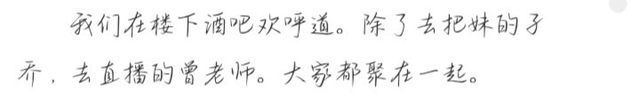 我们在楼下酒吧欢呼道。除了去把妹的子
乔，去直播的曾老师。大家都聚在一起。